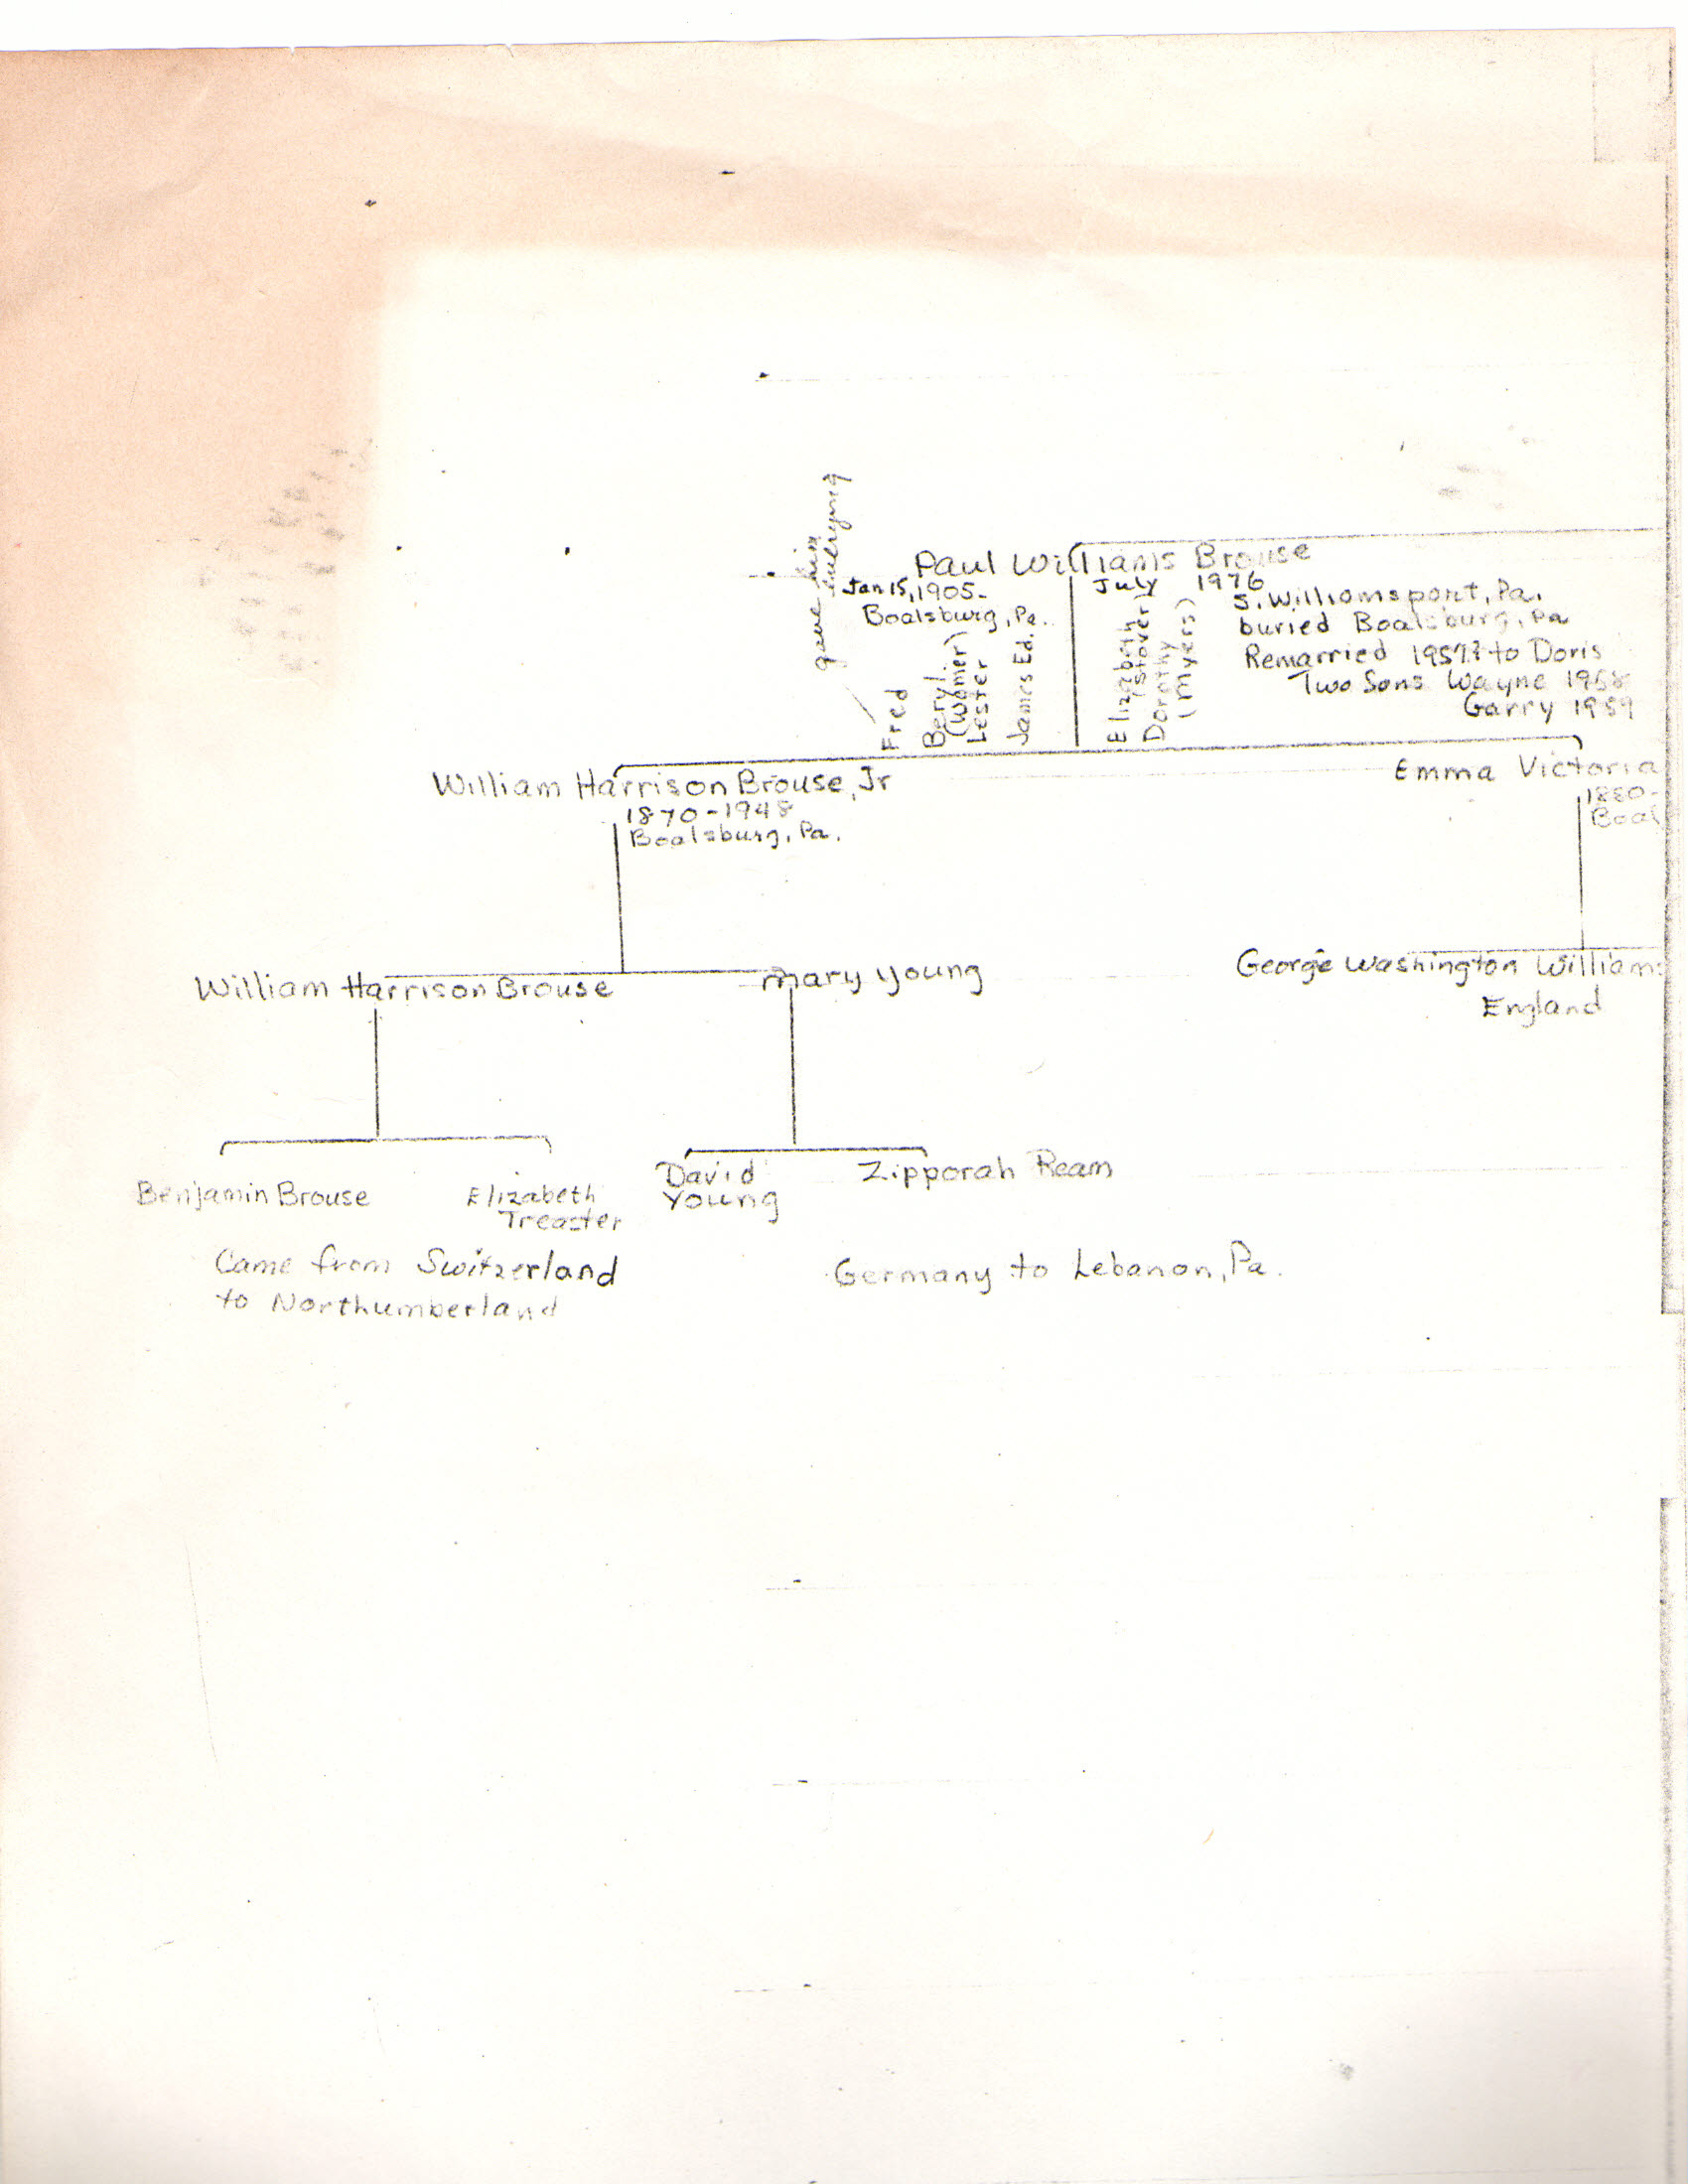 gave him
everyung
Paul Williams Brouse
Jan 15, 1905-
July 1976
Boalsburg, Pa.
S. Williamsport, Pa.
buried Boalsburg, Pa
Remarried 195?? to Doris
Two Sons Wayne 1958
Garry 1959
Fred
Beryl
(Womer)
Lester
James Ed.
Elizabeth
(Stover)
Dorothy
(Myers)
William Harrison Brouse, Jr
1870-1948
Boalsburg, Pa.
Emma Victoria
1880-
Boal
William Harrison Brouse
Mary Young
George Washington Williams
England
Benjamin Brouse
Elizabeth
Treaster
David
Young
Zipporah Ream
Came from Switzerland
to Northumberland
Germany to Lebanon, Pa.